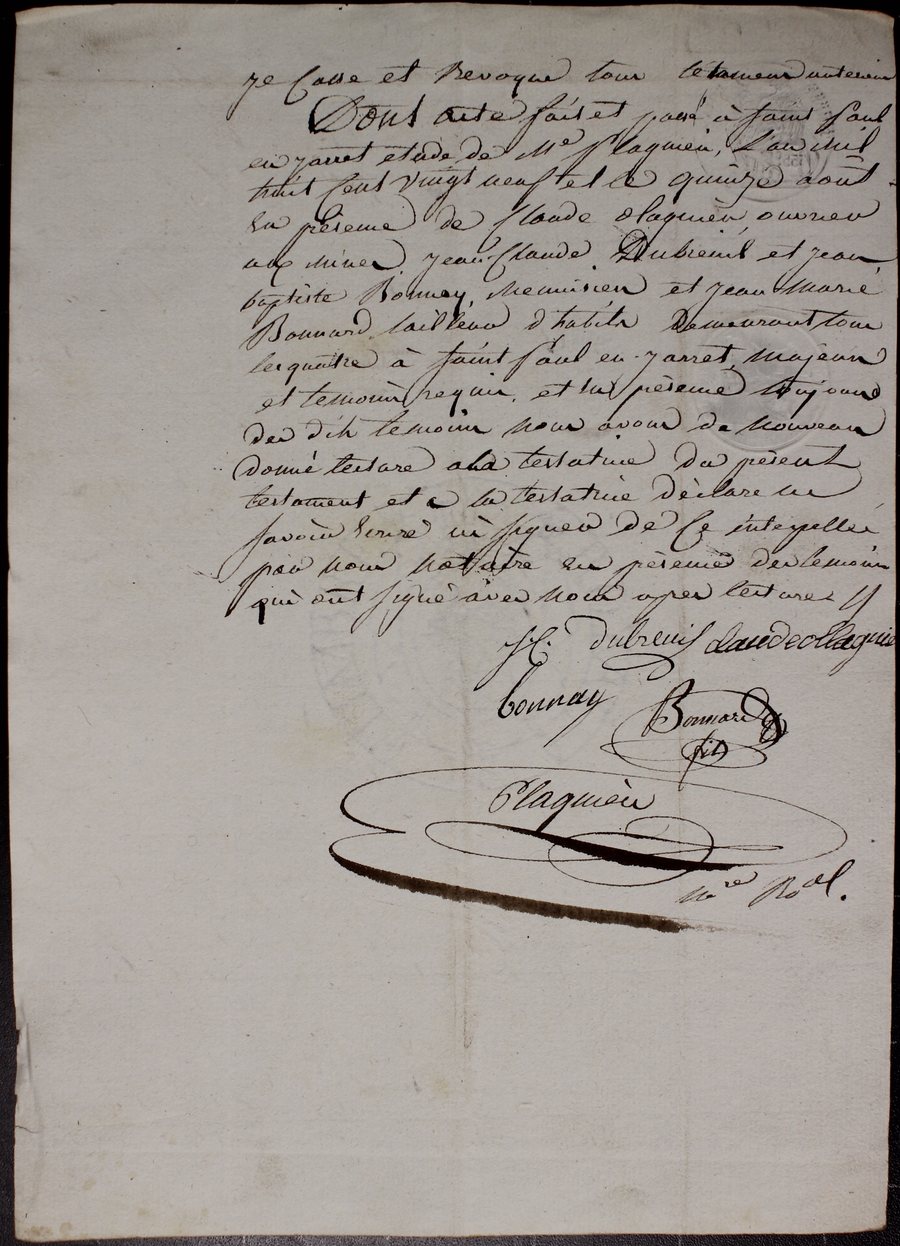 Je Casse et Revoque tous testamens anterieurs
Dont acte fait et passé à Saint Paul
en Jarret etude de Me Plagnieu, L'an mil
huit Cent vingt neuf et le quinze août
En présence de Claude Ollagnier, ouvrier
aux mines, Jean-Claude Dubreuil et Jean
baptiste Bonnay, Menuisier et Jean Marie
Bonnard tailleur d'habits Demeurant tous
les quatre à Saint Paul en Jarret, Majeurs
et temoins requis, et en présence toujours
des dits temoins Nous avons de Nouveau
donné lecture a la testatrice du présent
testament et a la testatrice déclaré ne
savoir Ecrire ni signer de Ce interpellée
par nous Notaire en présence des temoins
qui ont signé avec Nous apres lecture
JC. dubreuil Claude ollagnier
bonnay Bonnard
fils
Plagnieu
Nre Roal.